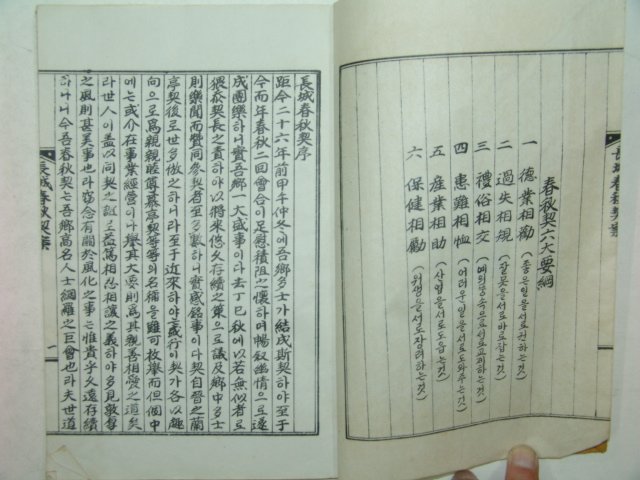 春秋契六大要綱
一 德業相勸 (좋은일을서로권하는것)
二 過失相規 (잘못을서로바로잡는것)
三 禮俗相交 (예의풍속으로서로교제하는것)
四 患難相恤 (어려운일을서로도와주는것)
五 産業相助 (산업을서로도웁는것)
六 保健相勵 (위생을서로장려하는것)
長城春秋契案
長城春秋契序
距今二十六年前甲午仲冬에吾鄕多士가結成斯契하야至于
今而年春秋二回會合이足慰積阻之懷하며暢敍幽情으로遂
成團樂하니實吾鄕一大盛事이다去丁巳秋에以若無似者로
猥忝契長之責하야以將來悠久存續之策으로議及鄕中多士
則樂聞而贊同參契者至多數하니實感銘事이다契自晉之蘭
亭契後로世多倣之하니라至于近來하야盛行이契가各以趣
向으로爲親睦爲慕亭契等等의名稱을雖可枚擧而但個中
에는或介在事業經營이나擧其大要則爲其親善相愛之道矣
라世人이益以同契之誼로益篤相恕相讓之義하야多見敦厚
之風則甚美事也라窃念有關於風化之事는惟貴乎久遠存續
하나니今吾春秋契는吾鄕高名人士網羅之巨會也라夫世道
長城春秋契案
一